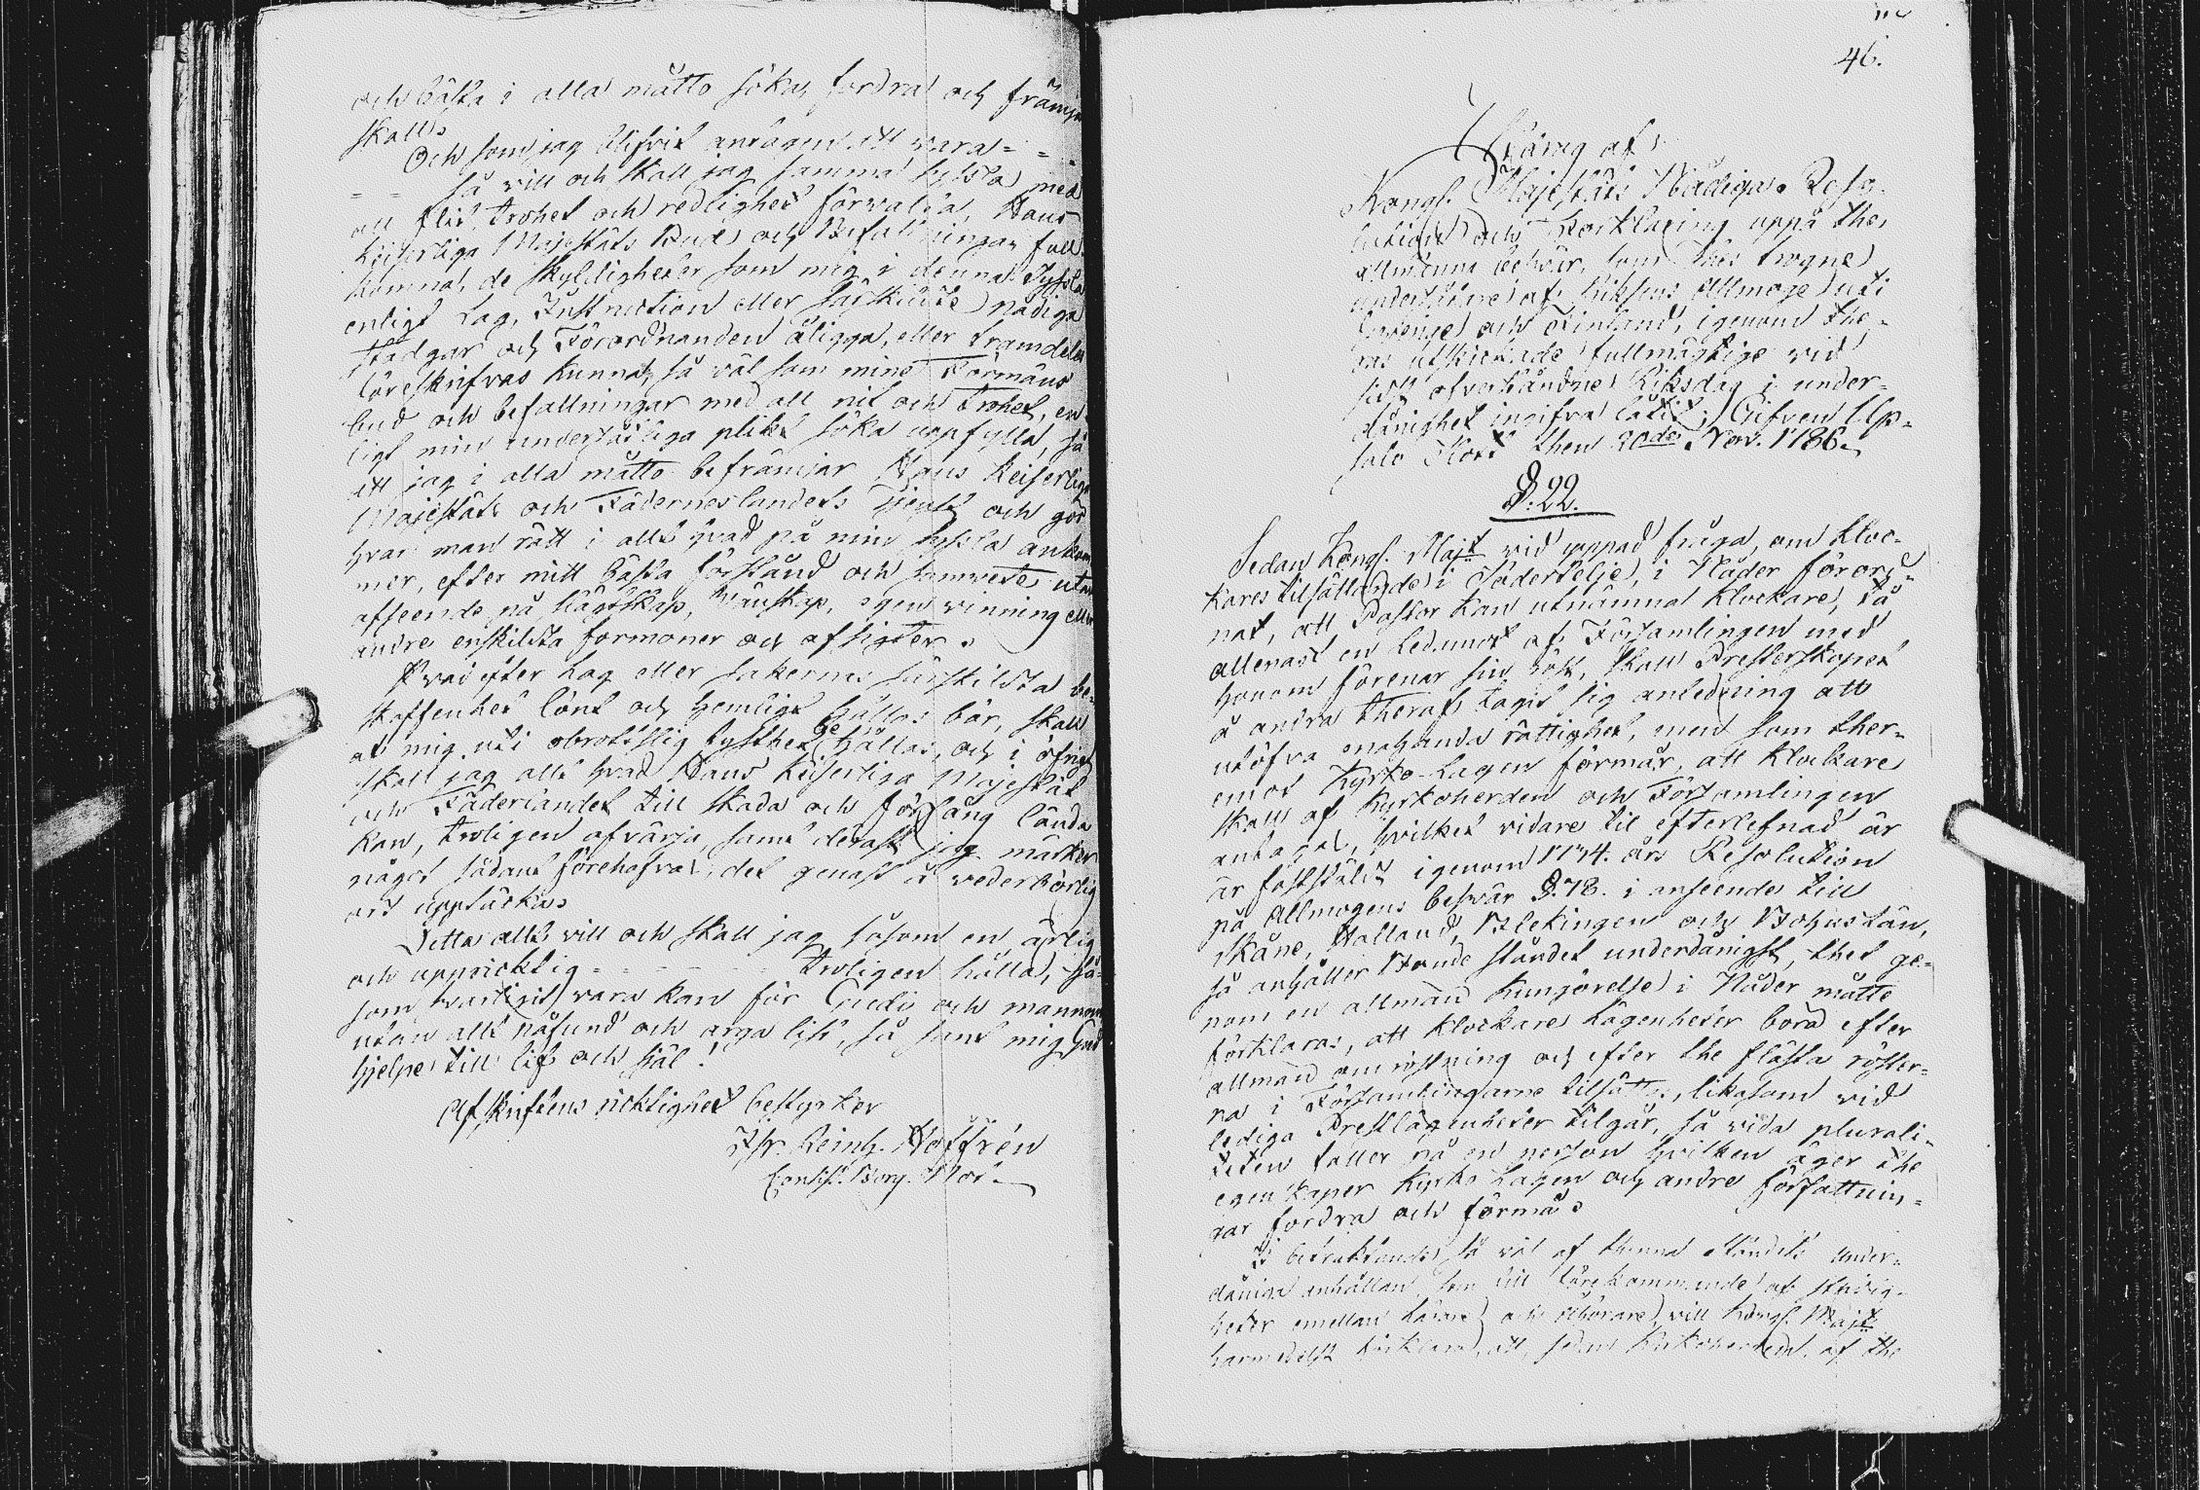 och bästa i alla måtto söka, fordra och främja
skall.
Och som jag blifvit antagen att vara = = =
= = så vill och skall jag samma syssla med
all flit, trohet och redlighet förvalta, Hans
Keiserliga Majestäts Bud och Befallningar full-
komna, de skyldigheter som mig i denna Syssla
enligt Lag, Instruction eller särskildte nådiga
stadgar och Förordnanden åligga, eller framdeles
föreskrifvas kunna, så väl som mine Förmäns
bud och befallningar med all nit och trohet, en-
ligt min undersåtliga plikt söka uppfylla, så
att jag i alla måtto befrämjar Hans Keiserliga
Majestäts och Fäderneslandets Tjenst och gör
hvar man rätt i allt hvad på min syssla ankom-
mer, efter mitt bästa förstånd och samwete utan
afseende på Slägtskap, Vänskap, egen vinning eller
andre enskildta formoner och afsigter.
Hvad efter Lag eller sakernes särskildta be-
skaffenhet lönt och hemligt hållas bör, skall
af mig uti obrottslig tysthet behållas, och i öfrigt
skall jag allt hvad Hans Keiserliga Majestät
och Fäderlandet till skada och förfång lända
kan, troligen afvärja, samt derast jag märker
något sådant förehafvas, det genast å vederbörlig
ort upptäcka.
Detta allt vill och skall jag såsom en ärlig
och uppricktig - - - - - - - troligen hålla, så-
som thet vara kan för Gudi och mannom
utan allt påfund och arga list, så sant mig Gud
hjelpe till lif och själ!
Afskriftens ricktighet bestyrker
Joh. Reinh. Hoffrén
Consist. Borg. Not.
46.
Utdrag af
Kongl. Majestäts Nådiga Reso-
lution och Förklaring uppå the
allmänna besvär, som Thes trogne
undersåtare af Riksens Allmoge uti
Sverige och Finland, igenom the-
ras utskickade fullmägtige vid
sidst öfverståndne Riksdag i under-
dånighet ingifva låtit; Gifven Up-
sala Slott then 20de Nov. 1786.
§. 22.
Sedan Kongl. Majt vid uppad fråga, om kloc-
kares tilsättande i Södertelje, i Nåder förord-
nat, att Pastor kan utnämna klockare, då
allenast en ledamot af Församlingen med
honom förenar sin röst, skall Presterskapet
å andra theraf tagit sig anledning att
utöfva enahanda rättighet, men som ther-
emot Kyrko-Lagen förmår, att klockare
skall af Kyrkoherden och Församlingen
antagas, hvilket vidare til efterlefnad är
är fastställt igenom 1734. års Resolution
på Allmogens besvär §. 78. i anseende till
Skåne, Halland, Blekingen och Bohuslän,
så anhåller Bonde ståndet underdånigst, thet ge-
nom en allmän kungörelse i Nåder måtte
förklaras, att klockare lägenheter borde efter
allmän omröstning och efter the flästa röster-
na i Församlingarne tilsättas, likasom vid
lediga Prestlägenheter tilgår, så vida plurali-
teten faller på en person hvilken äger the
egenskaper Kyrko Lagen och andre författnin-
gar fordra och förmå.
I betraktande så väl af thenna Ståndets under-
dåniga anhållan, som till förekommande af stridig-
heter emellan Lärare och Åhörare, vill Kongl. Majt
harmedelst förklara, att, sedan Kyrkoherden af the